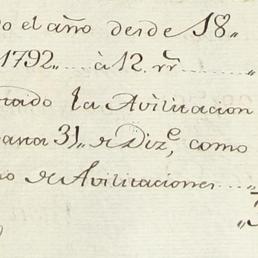 o el año desde 18„
1792„ .... à 12. rr̃ .... „
tado la Avilitacion
para 31„ de Diz.ᵉ, como
o de Avilitaciones .... „